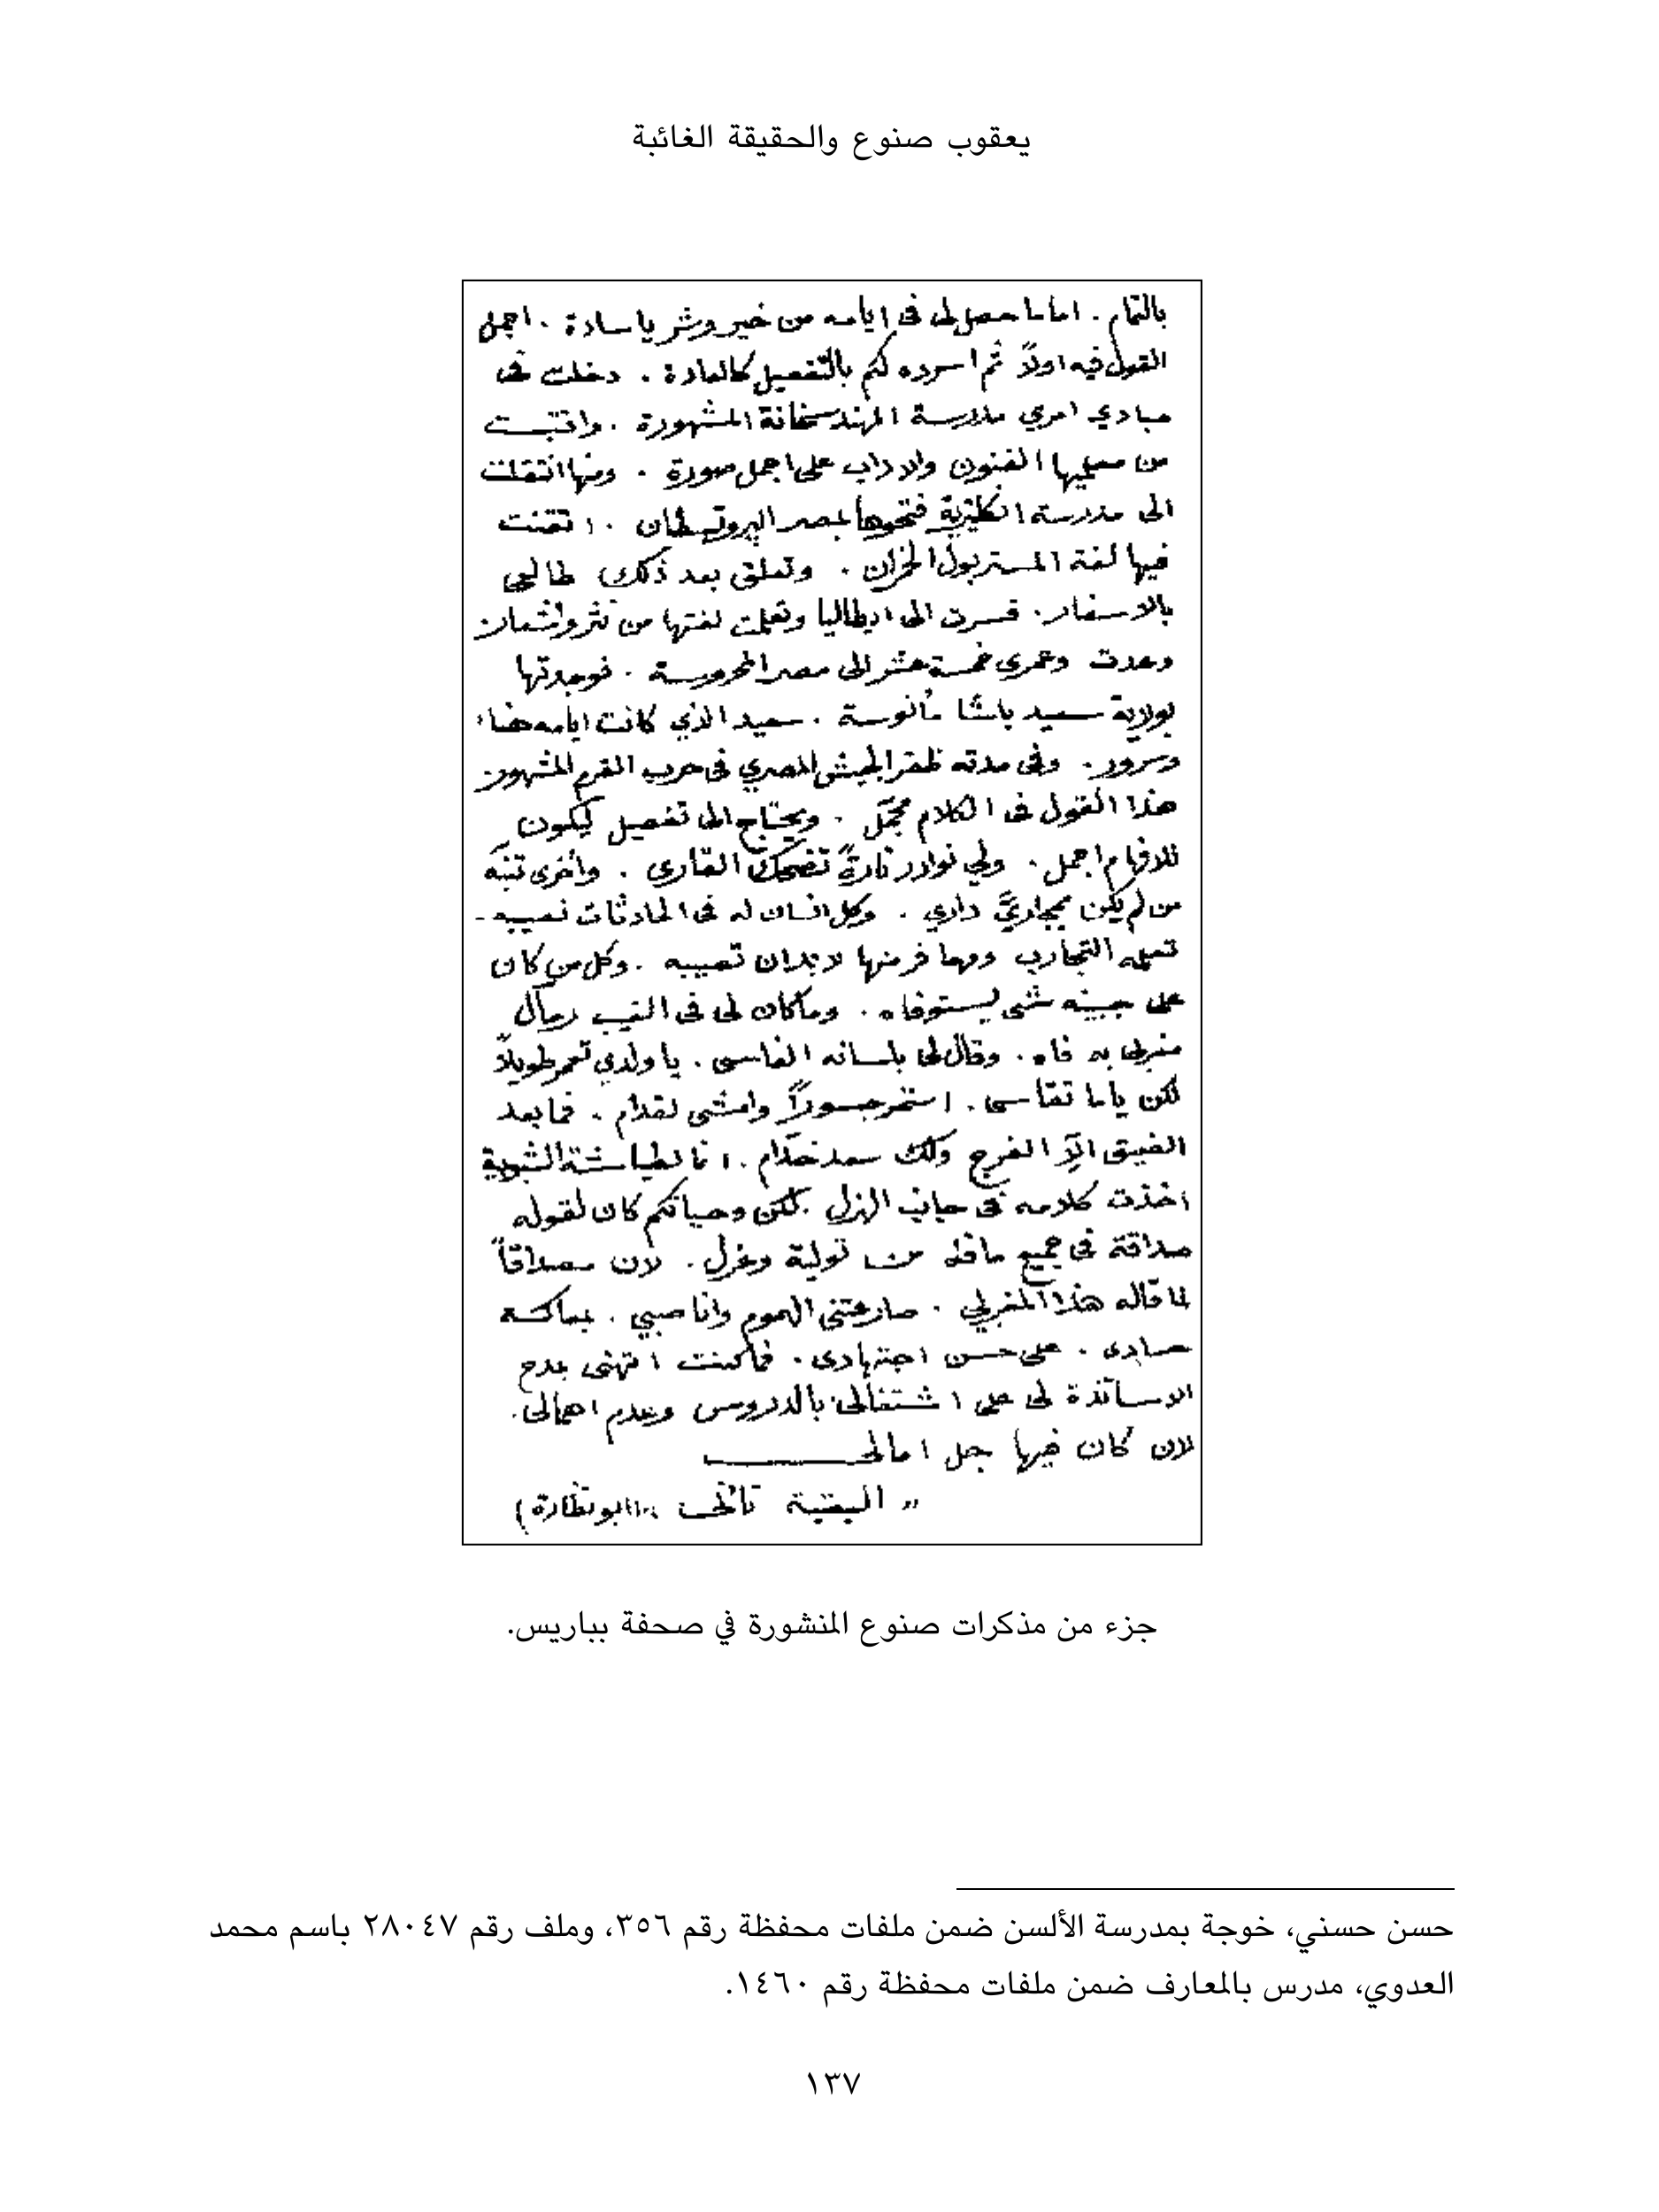 يعقوب صنوع والحقيقة الغائبة
بالتمام . اما ما حصل لى فى ايامه من خير وشر يا سادة . اجمل
القول فيه اولاً ثم اسرده لكم بالتفصيل كالعادة . دخلت فى
مبادي امري مدرسة المهندسخانة المشهورة . واقتبست
من معلميها الفنون والاداب على اجمل صورة . ومنها انتقلت
الى مدرسة انكليزية فتحوها بمصر البروتسطان . اتقنت
فيها لغة المستربول الخزان . وتعلق بعد ذلك طالعى
بالاسفار . فسرت الى ايطاليا وتعلمت لغتها من نثر واشعار
وعدت وعمري خمسة عشر الى مصر المحروسة . فوجدتها
بولاية سعيد باشا مأنوسة . سعيد الذي كانت ايامه هناء
وسرور . وفى مدته ظفر الجيش المصري فى حرب القرم المشهور
هذا القول فى الكلام مجمَل . ويحتاج الى تفصيل ليكون
للافهام اجمل . ولي نوادر تارةً تضحك القاري . وأخرى تنبّه
من لم يكن بمجاريَّ داري . وكل انسان له فى الحادثات نصيب
تعلمه التجارب ومهما فر منها لا بد ان تصيبه . وكل من كان
على جبينه شى يستوفاه . وما كان لى فى الغيب رجال
مغربى به فاه . وقال لى بلسانه الفاسى . يا ولدي تعمر طويلاً
لكن ياما تقاسى . استمر جسوراً وامشى لقدام . فما بعد
الضيق الّا الفرج ولك سعد خدّام . انا لطياشة الشبوبية
اخذت كلامه فى جانب الهزل . لكن وحياتكم كان لقوله
صداقة فى جميع ماقطـ من تولية وعزل . لان مصداقاً
لما قاله هذا المغربي . صارعتنى الهموم وانا صبي . بمعاكسة
حسادى . على حسن اجتهادى . فما كنت اتهنى بمدح
الاساتذة لى على اشتغالى بالدروس وعدم اهمالى .
لان كان فيها جل امالى
" البقية تأتى " ابو نظارة)
جزء من مذكرات صنوع المنشورة في صحفة بباريس.
حسن حسني، خوجة بمدرسة الألسن ضمن ملفات محفظة رقم ٣٥٦، وملف رقم ٢٨٠٤٧ باسم محمد
العدوي، مدرس بالمعارف ضمن ملفات محفظة رقم ١٤٦٠.
١٣٧